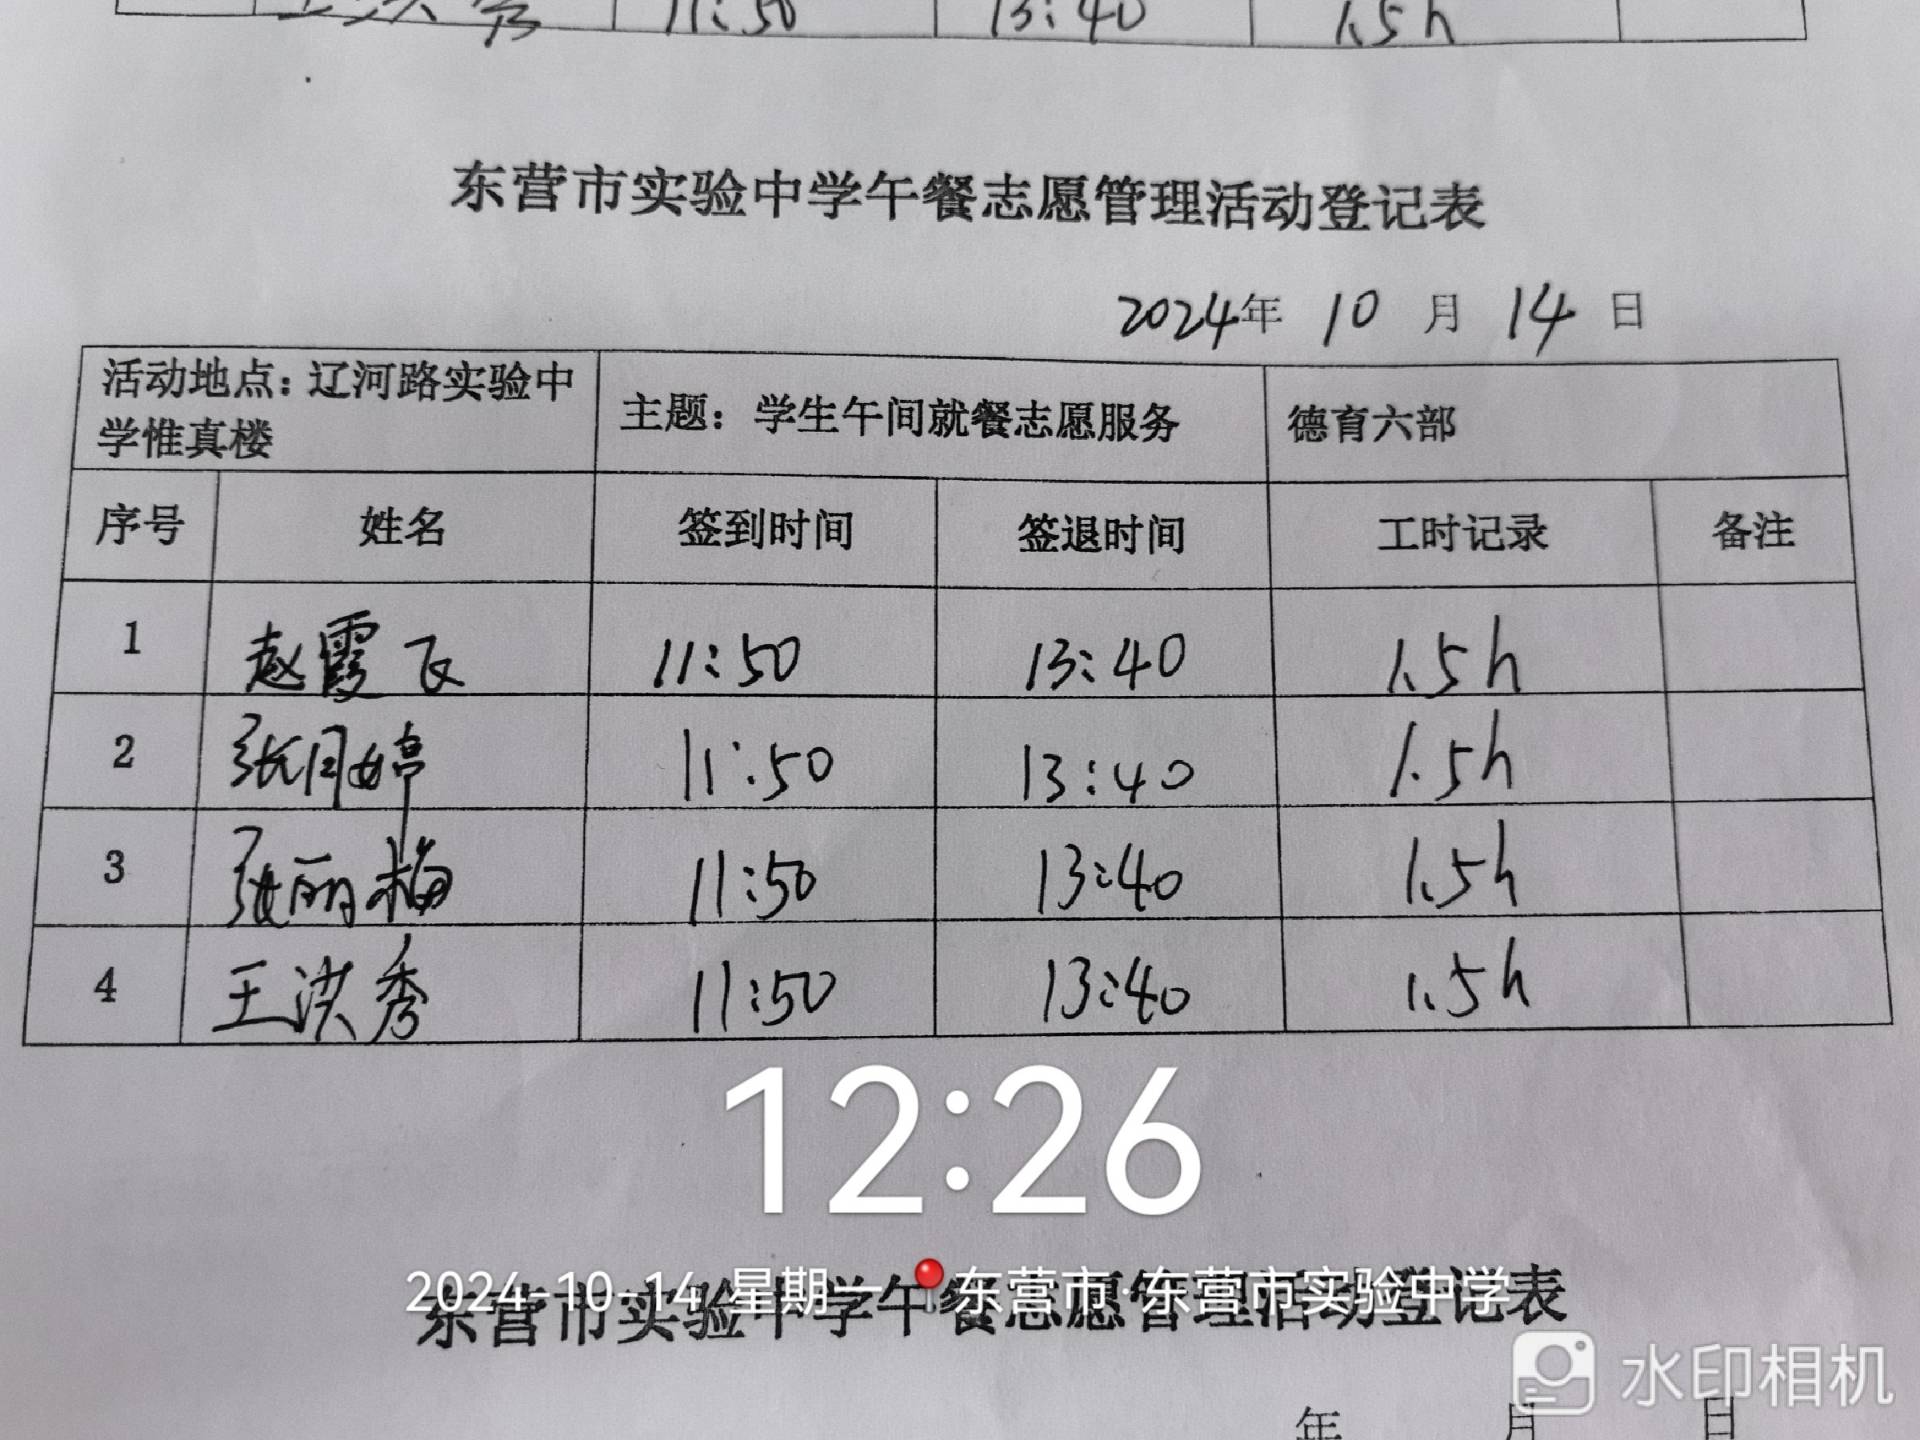 11:50 13:40 1.5h
东营市实验中学午餐志愿管理活动登记表
2024年 10 月 14 日
活动地点：辽河路实验中学惟真楼 主题：学生午间就餐志愿服务 德育六部
序号 姓名 签到时间 签退时间 工时记录 备注
1 赵霞飞 11:50 13:40 1.5h
2 张月婷 11:50 13:40 1.5h
3 张丽梅 11:50 13:40 1.5h
4 王洪秀 11:50 13:40 1.5h
12:26
2024-10-14 星期一 东营市·东营市实验中学
东营市实验中学午餐志愿管理活动登记表
水印相机
年 月 日